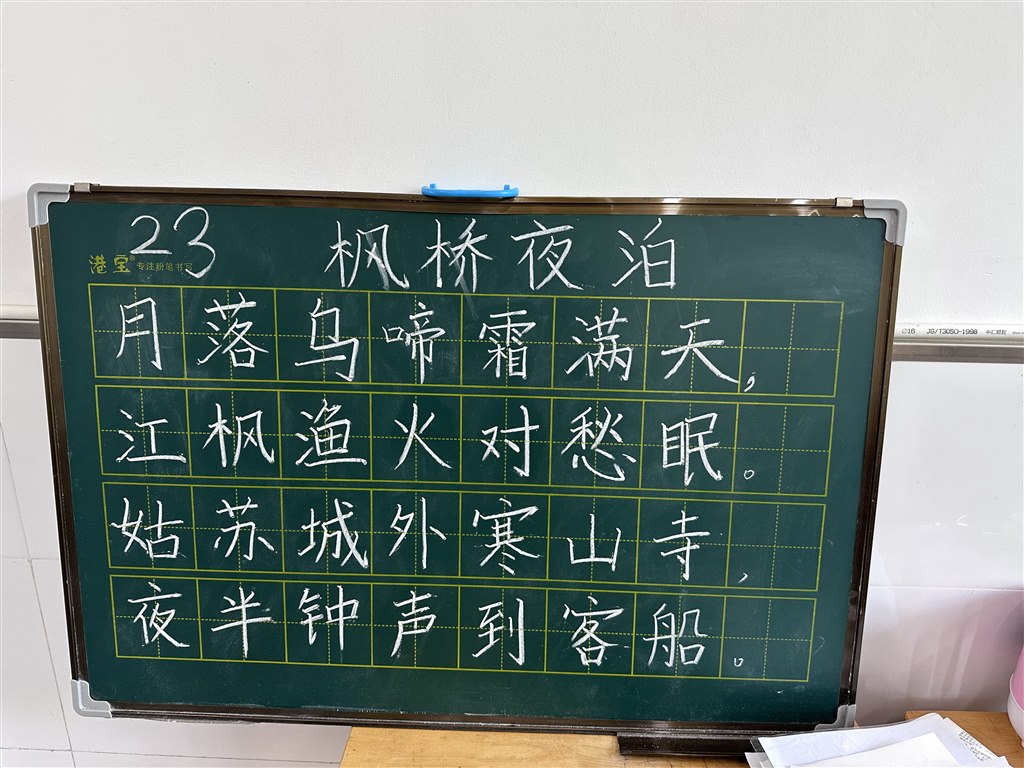 23 枫桥夜泊
港宝® 专注粉笔书写
月落乌啼霜满天，
江枫渔火对愁眠。
姑苏城外寒山寺，
夜半钟声到客船。
∅16 JG/T3050-1998